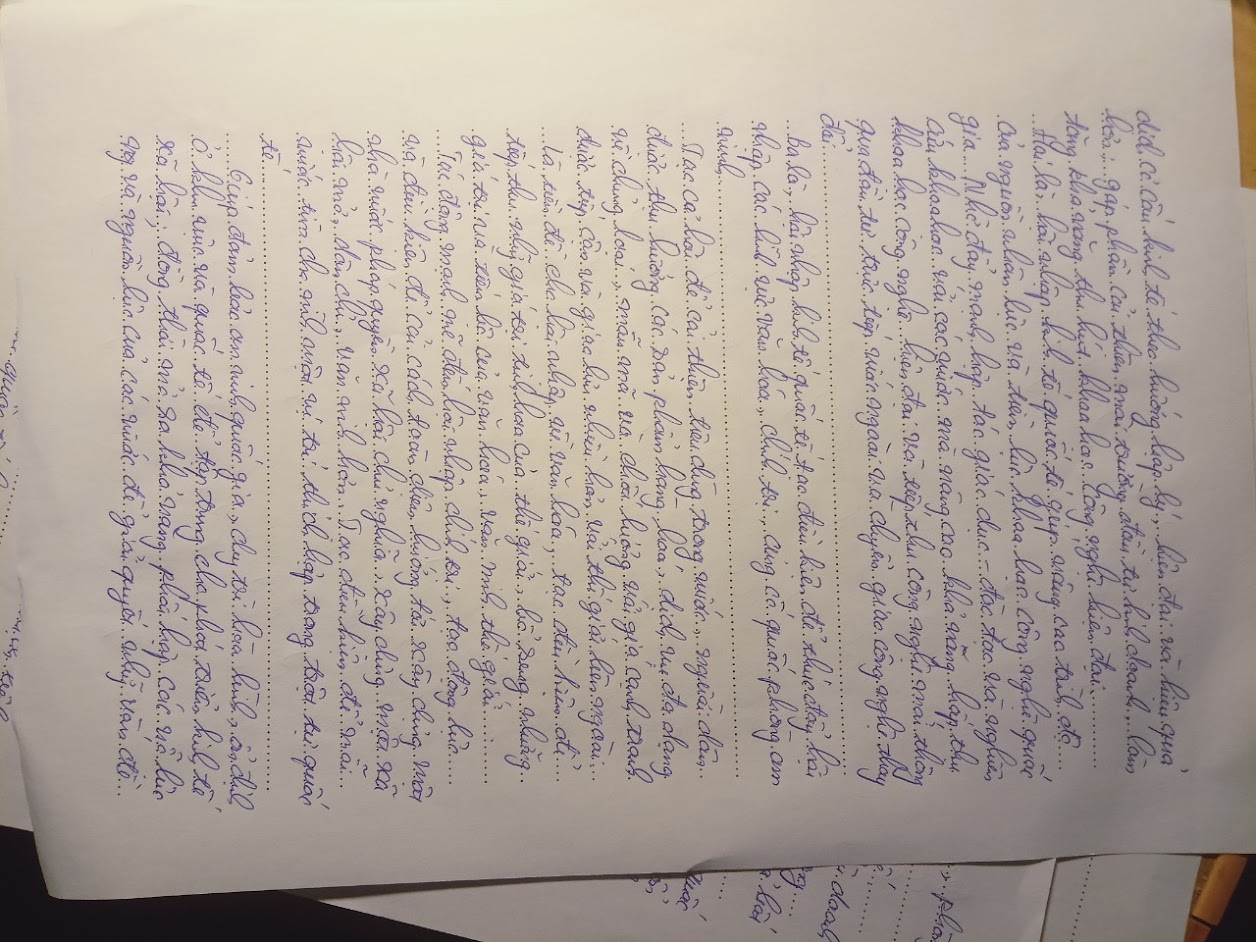 dịch cơ cấu kinh tế theo hướng hợp lý, hiện đại và hiệu quả
hơn; góp phần cải thiện môi trường đầu tư kinh doanh, làm
tăng khả năng thu hút khoa học công nghệ hiện đại.
Hai là, hội nhập kinh tế quốc tế giúp nâng cao trình độ
của nguồn nhân lực và tiềm lực khoa học công nghệ quốc
gia. Nhờ đẩy mạnh hợp tác giáo dục - đào tạo và nghiên
cứu khoa học với các nước mà nâng cao khả năng hấp thu
khoa học công nghệ hiện đại và tiếp thu công nghệ mới thông
qua đầu tư trực tiếp nước ngoài và chuyển giao công nghệ thay
đổi.
Ba là, hội nhập kinh tế quốc tế tạo điều kiện để thúc đẩy hội
nhập các lĩnh vực văn hóa, chính trị, củng cố quốc phòng an
ninh.
Tạo cơ hội để cải thiện tiêu dùng trong nước, người dân
được thụ hưởng các sản phẩm hàng hoá, dịch vụ đa dạng
về chủng loại, mẫu mã và chất lượng với giá cạnh tranh
được tiếp cận và giao lưu nhiều hơn với thế giới bên ngoài.
Là tiền đề cho hội nhập về văn hóa, tạo điều kiện để
tiếp thu những giá trị tinh hoa của thế giới, bổ sung những
giá trị và tiến bộ của văn hóa, văn minh thế giới.
Tác động mạnh mẽ đến hội nhập chính trị, tạo động lực
và điều kiện để cải cách toàn diện hướng tới xây dựng một
nhà nước pháp quyền xã hội chủ nghĩa, xây dựng một xã
hội mở, dân chủ, văn minh hơn. Tạo điều kiện để mỗi
nước tìm cho mình một vị trí thích hợp trong trật tự quốc
tế.
Giúp đảm bảo an ninh quốc gia, duy trì hòa bình, ổn định
ở khu vực và quốc tế để tập trung cho phát triển kinh tế
xã hội; đồng thời mở ra khả năng phối hợp các nỗ lực
và nguồn lực của các nước để giải quyết những vấn đề
phòng
doanh
hội
quốc